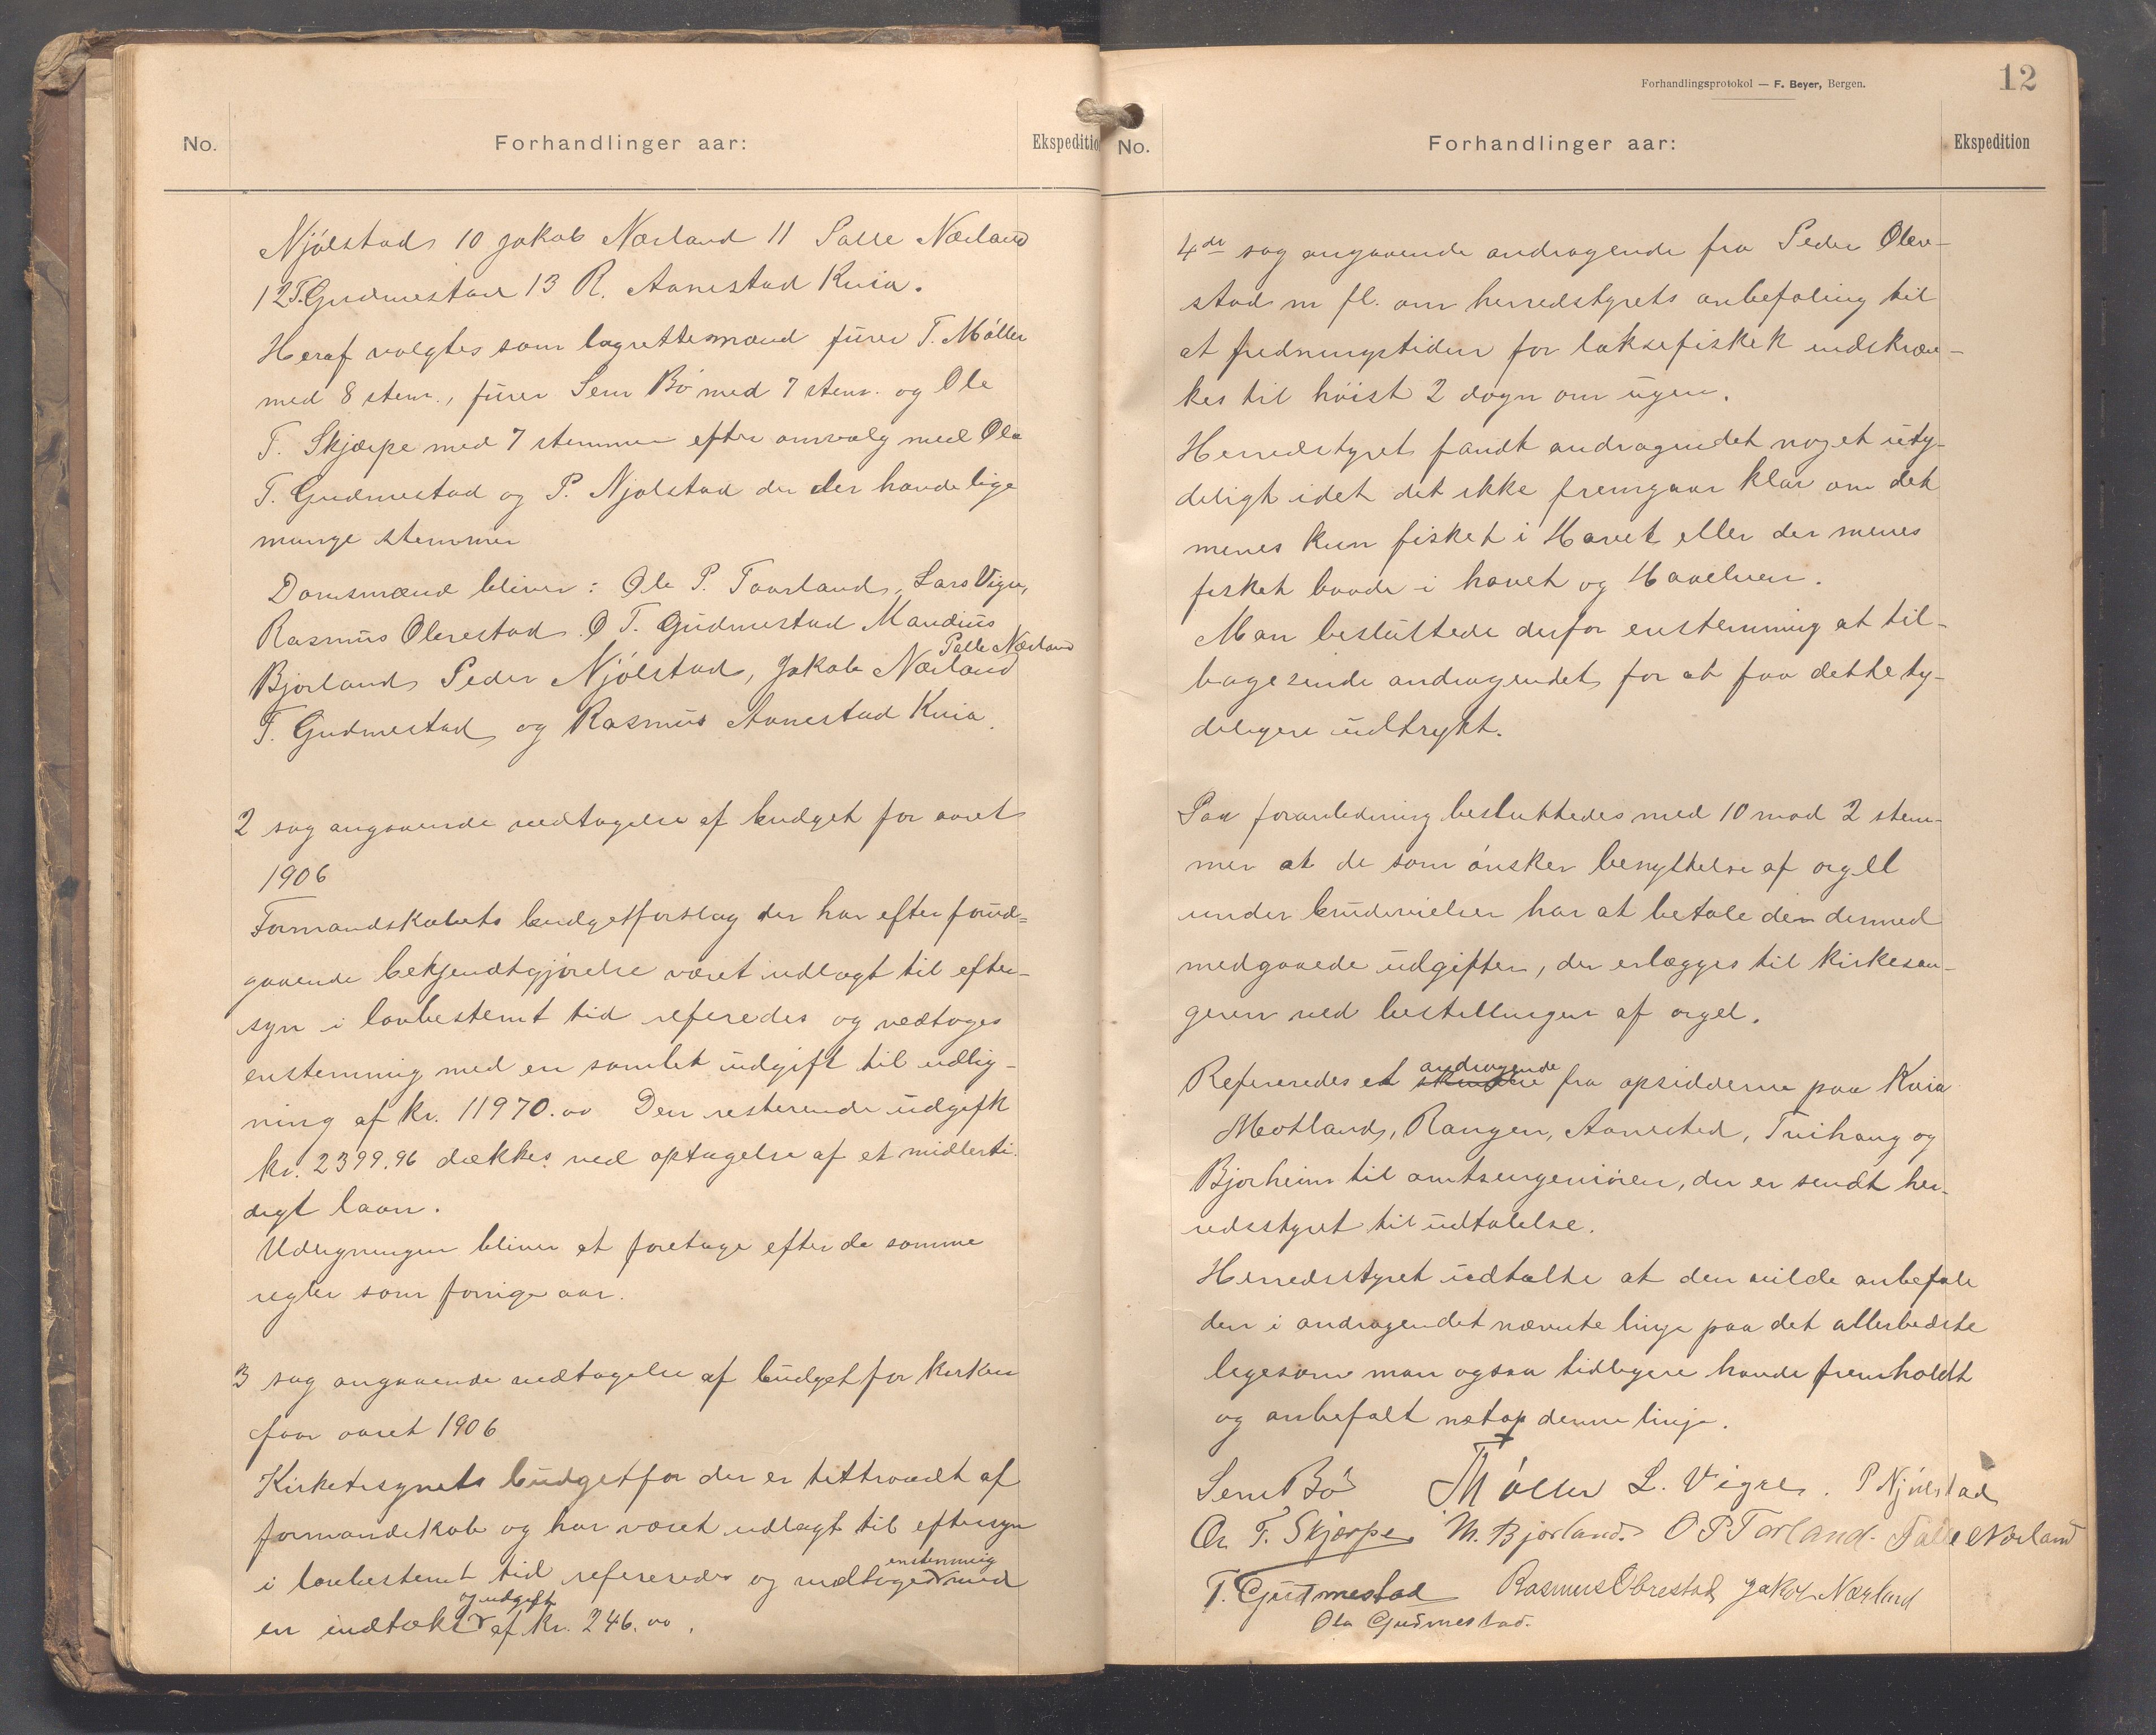 No.
Forhandlinger aar:
Ekspeditio
Njólstad 10 Jakob Nærland 11 Salle Nærland
12 T. Gudmestad 13 R. Aanestad Kvia.
Heraf valgtes som lagrettesmænd fürer T. Móller
med 8 stem., fürer Sem Bó med 7 stem. og Ole
T. Skjærpe med 7 stemmer efter omvalg med Ole
T. Gudmestad og P. Njolstad der der havde lige
mange stemmer
Domsmænd bliver: Ole P. Taarland, Lars Vigre,
Rasmus Obrestad O T. Gudmestad Mandius
Palle Nærland
Bjorland Peder Njólstad, Jakob Nærland
T. Gudmestad og Rasmus Aanestad Kvia.
2 sag angaaende vedtagelse af budget for aaret
1906
Formandskabets budgetforslag der har efter forud=
gaaende bekjendtgjórelse været udlagt til efter-
syn i lovbestemt tid referedes og vedtoges
enstemmig med en samlet udgift til udlig-
ning af kr. 11970.00 Den resterende udgift
kr. 2399.96 dækkes ved optagelse af et midlerti-
digt laan.
Udligningen bliver at foretage efter de samme
regler som forrige aar.
3 sag angaaende vedtagelse af budget for kirken
for aaret 1906
Kirketilsynets budget for der er tiltraadt af
formandskab og har været udlagt til eftersyn
enstemmig
i lovbestemt tid refereredes og vedtoges med
og udgift
en indtækt af kr. 246.00.
Forhandlingsprotokol — F. Beyer, Bergen.
12
No.
Forhandlinger aar:
Ekspedition
4de sag angaaende andragende fra Peder Obre-
stad m fl. om herredstyrets anbefaling til
at fredningstiden for laksefisket indskræn-
kes til hóist 2 dógn om ugen.
Herredstyret fandt andragendet noget uty-
deligt idet det ikke fremgaar klar om det
menes kun fisket i Havet eller der menes
fisket baade i havet og Haaelven.
Man besluttede derfor enstemmig at til-
bagesende andragendet for at faa dette ty-
deligere udtrykt.
Paa foranledning besluttedes med 10 mod 2 stem-
mer at de som ónsker benyttelse af orgel
under brudevielser har at betale den dermed
medgaaede udgifter, der erlægges til kirkesan-
geren ved bestillingen af orgel.
andragende
Refereredes et fra opsidderne paa Kvia
Motland, Rangen, Aanestad, Tvihaug og
Bjorheim til amtsingeniören, der er sendt her-
redsstyret til udtalelse.
Herredsstyret udtalte at den vilde anbefale
den i andragendet nævnte linje paa det allerbedste
ligesom man ogsaa tidligere havde fremholdt
og anbefalt netop denne linje.
Sem Bó T Móller L. Vigre. P Njólstad
O. T. Skjærpe M. Bjorland. O P Torland. Palle Nærland
T. Gudmestad Rasmus Obrestad Jakob Nærland
Ola Gudmestad.